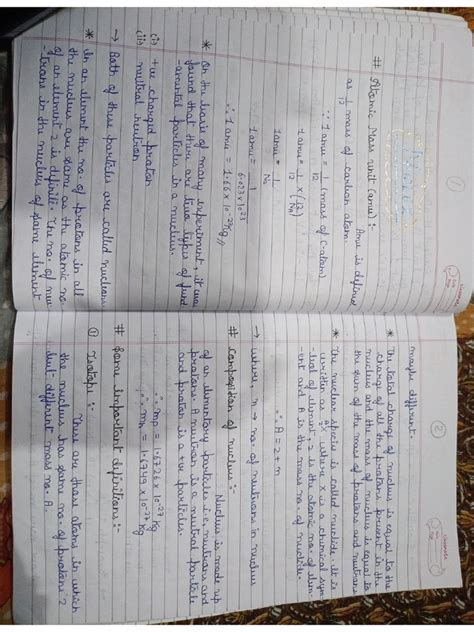 1
# Atomic Mass Unit (amu) :-
Amu is defined
as 1/12 mass of carbon atom
∵ 1 amu = 1/12 (mass of C-atom)
1 amu = 1/12 × (12/NA)
1 amu = 1/NA
1 amu = 1/6.023×10^23
∴ 1 amu = 1.66×10^-27 kg //
* On the basis of many experiment, it was
found that there are two types of fund
-amental particles in a nucleus.
(i) +ve charged proton
(ii) neutral neutron
→ Both of these particles are called nucleons
* In an element the no. of protons in all
the nucleus are same as the atomic no.
of an element Z is definite. The no. of neu-
-trons in the nucleus of same element
2
maybe different.
* The total charge of nucleus is equal to the
charge of all the protons present in the
nucleus and the mass of nucleus is equal to
the sum of the mass of protons and neutrons
* The nuclear species is called nuclide. It is
written as where X is a chemical sym-
-bol of element, Z is the atomic no. of elem-
-ent and A is the mass no. of nuclide.
∴ A = Z + n
→ where, n → no. of neutrons in nucleus
# Composition of nucleus :-
Nucleus is made up
of an elementary particles i.e., neutrons and
protons. A neutron is a neutral particle
and proton is a +ve particles.
∴ mp = 1.6726 × 10^-27 kg
∴ mn = 1.6749 × 10^-27 kg
# Some important definitions :-
1 Isotope :-
These are those atoms in which
the nucleus has same no. of protons Z
but different mass no. A.